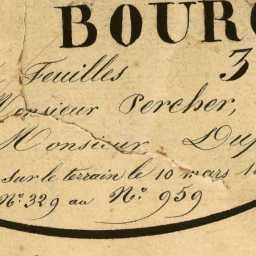 BOUR
3
Feuilles
Monsieur Percher,
Monsieur Dup
sur le terrain le 10 mars 1
N.º 329 au N.º 959